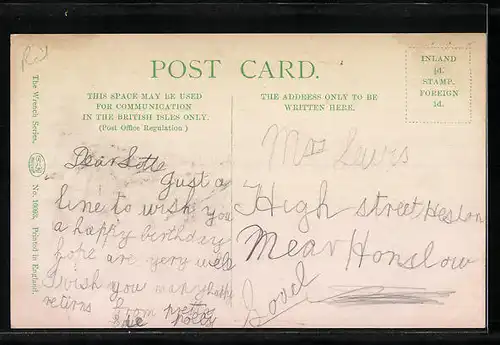 POST CARD.
THIS SPACE MAY BE USED
FOR COMMUNICATION
IN THE BRITISH ISLES ONLY.
(Post Office Regulation)
THE ADDRESS ONLY TO BE
WRITTEN HERE.
INLAND
½d.
STAMP.
FOREIGN
1d.
The Wrench Series.
Printed in England.
Dear
Just a
line to wish you
a happy birthday
hope are very well
I wish you many happy
returns from pretty
polly
Lewis
High street Heston
Near Honslow